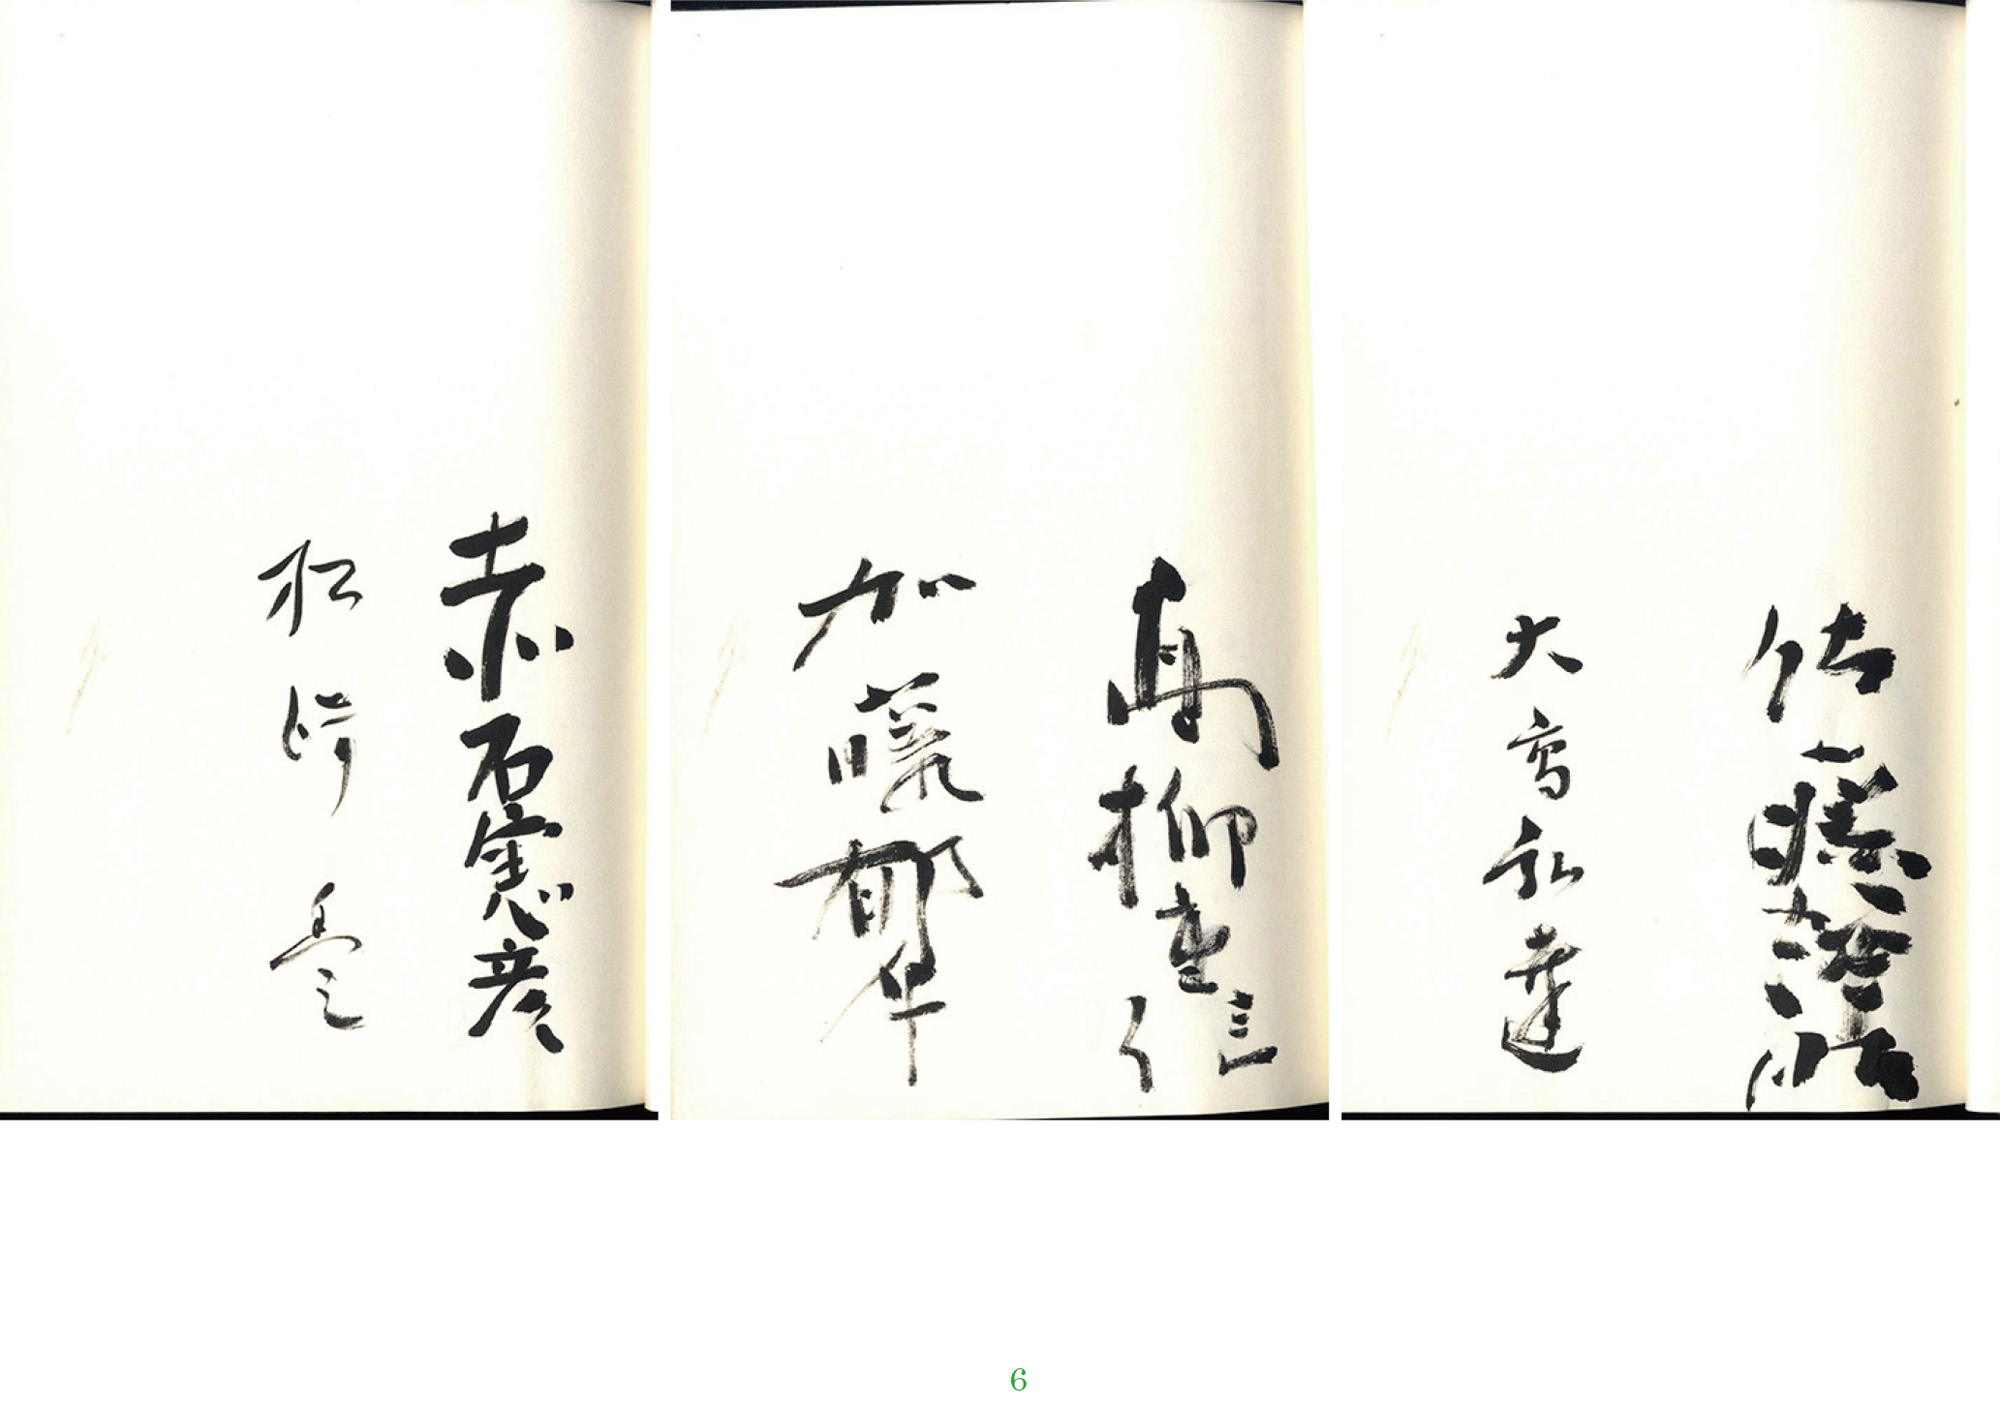 佐藤
大高弘達
高柳重信
加藤郁乎
赤石憲彦
松崎豊
6